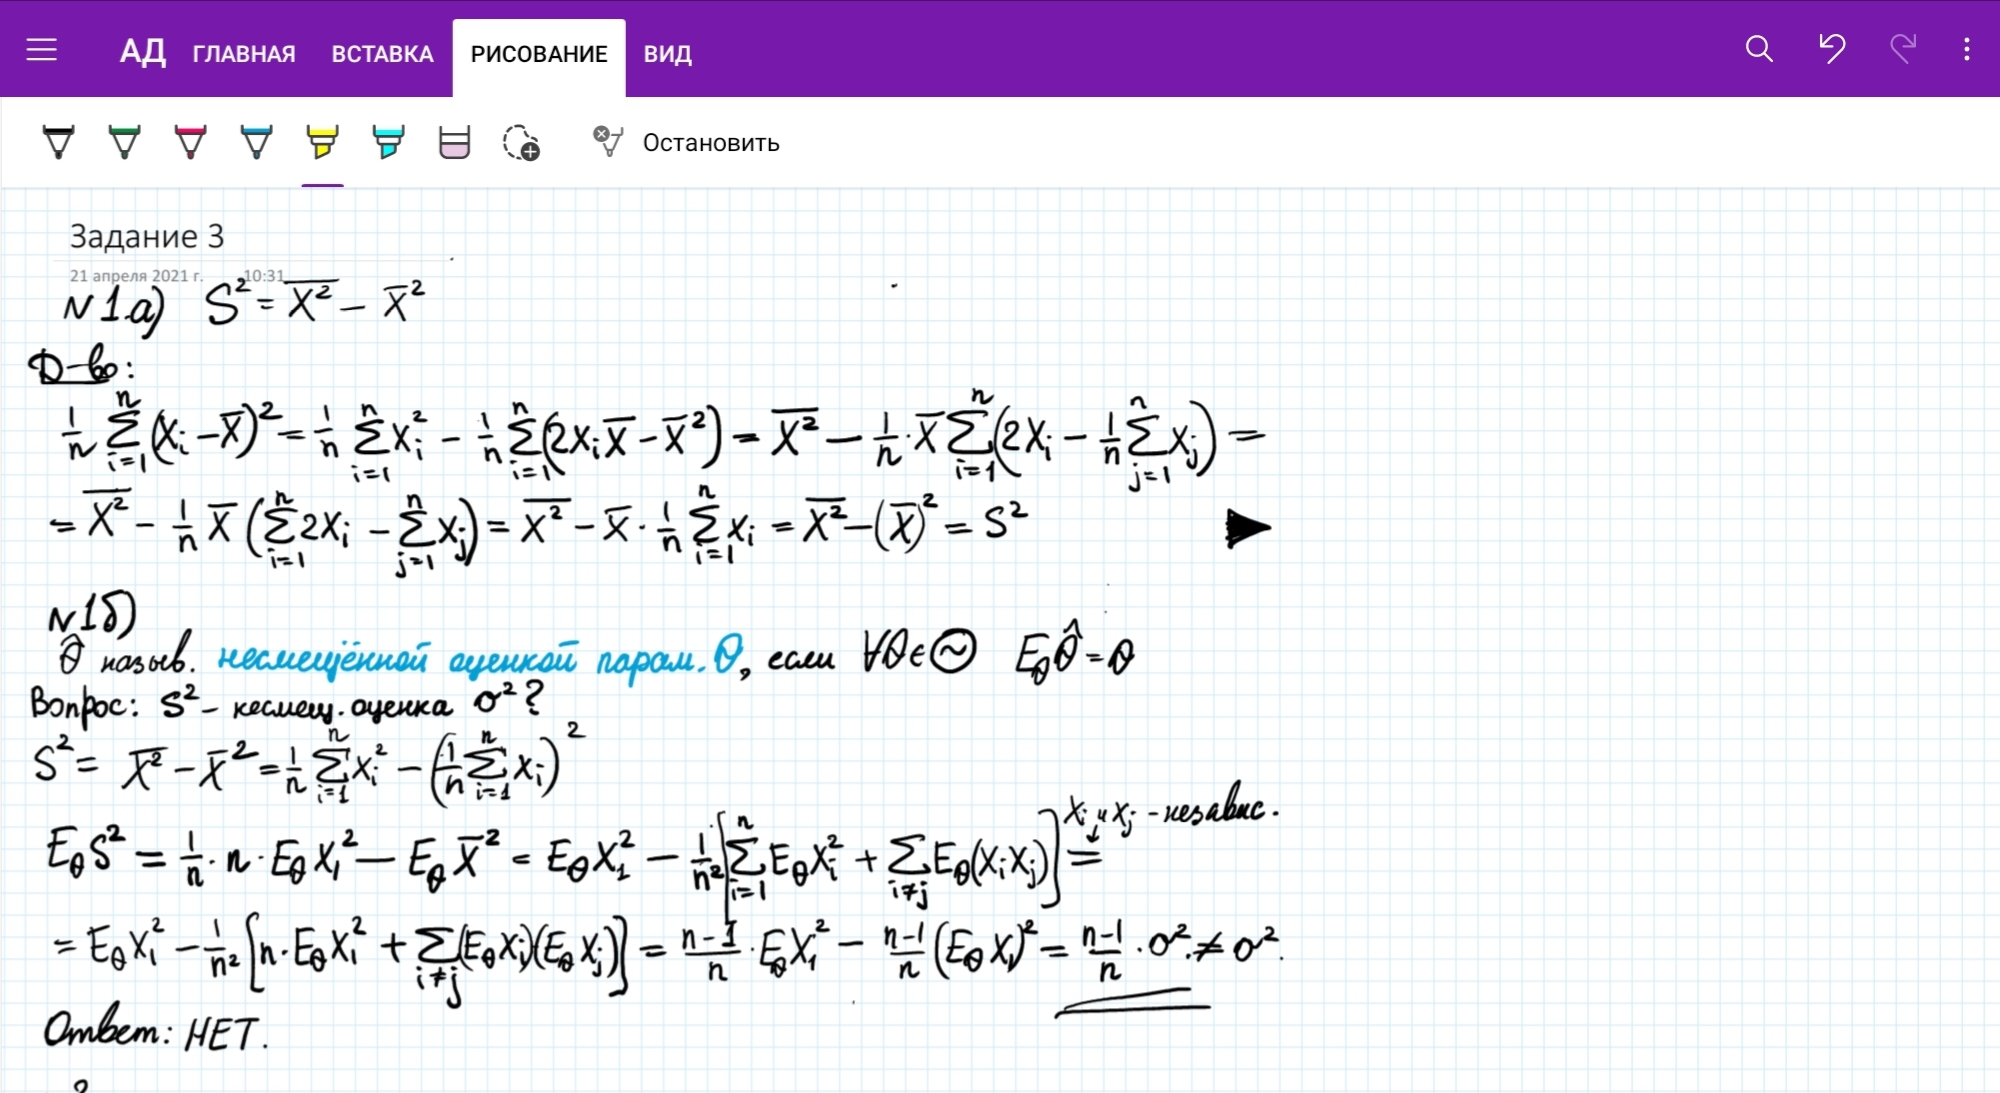 АД ГЛАВНАЯ ВСТАВКА РИСОВАНИЕ ВИД
Остановить
Задание 3
21 апреля 2021 г. 10:31
N 1.а) S² = \overline{X²} − \overline{X}²
Д-во:
\frac{1}{n} \sum_{i=1}^{n} (X_i − \overline{X})² = \frac{1}{n} \sum_{i=1}^{n} X_i² − \frac{1}{n} \sum_{i=1}^{n} (2X_i \overline{X} − \overline{X}²) = \overline{X²} − \frac{1}{n} · \overline{X} \sum_{i=1}^{n} (2X_i − \frac{1}{n} \sum_{j=1}^{n} X_j) =
= \overline{X²} − \frac{1}{n} \overline{X} (\sum_{i=1}^{n} 2X_i − \sum_{j=1}^{n} X_j) = \overline{X²} − \overline{X} · \frac{1}{n} \sum_{i=1}^{n} X_i = \overline{X²} − (\overline{X})² = S² ▶
N 1б)
\hat{θ} назыв. несмещённой оценкой парам. θ, если ∀θ ∈ Θ E_θ \hat{θ} = θ
Вопрос: S² – несмещ. оценка σ²?
S² = \overline{X²} − \overline{X}² = \frac{1}{n} \sum_{i=1}^{n} X_i² − (\frac{1}{n} \sum_{i=1}^{n} X_i)²
X_i и X_j – независ.
E_θ S² = \frac{1}{n} · n · E_θ X_1² − E_θ \overline{X}² = E_θ X_1² − \frac{1}{n²} [\sum_{i=1}^{n} E_θ X_i² + \sum_{i≠j} E_θ (X_i X_j)] =
= E_θ X_1² − \frac{1}{n²} [n · E_θ X_1² + \sum_{i≠j} (E_θ X_i)(E_θ X_j)] = \frac{n−1}{n} · E_θ X_1² − \frac{n−1}{n} (E_θ X_1)² = \frac{n−1}{n} · σ² ≠ σ².
Ответ: НЕТ.